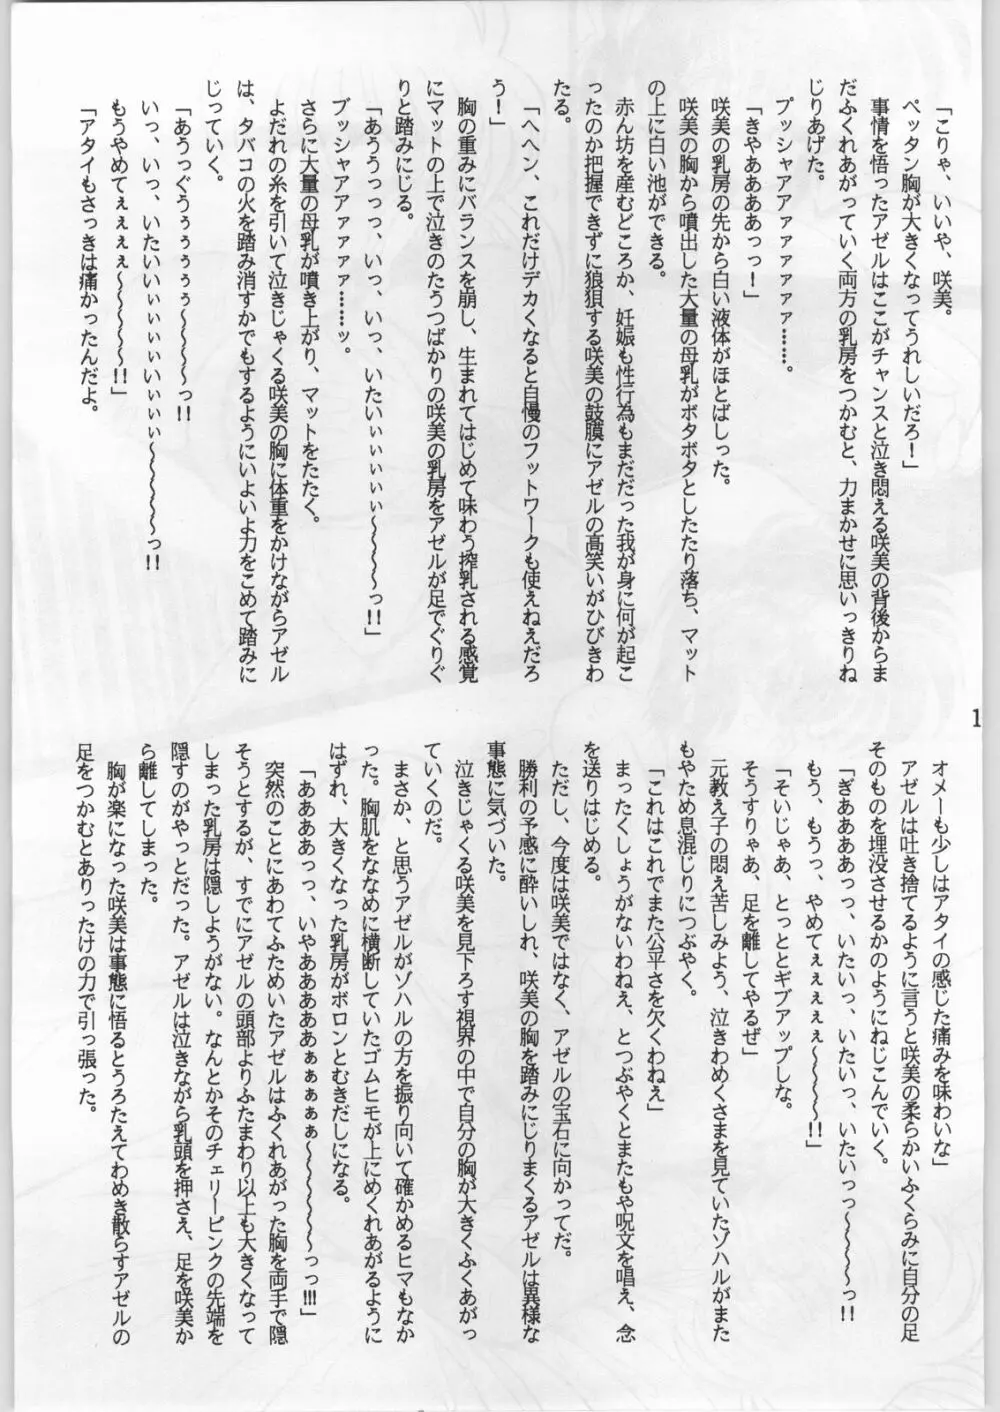 「こりゃ、いいや、咲美。
ペッタン胸が大きくなってうれしいだろ！」
事情を悟ったアゼルはここがチャンスと泣き悶える咲美の背後からま
だふくれあがっていく両方の乳房をつかむと、力まかせに思いっきりね
じりあげた。
プッシャアアアァァァァァ……。
「きやああああっっ！」
咲美の乳房の先から白い液体がほとばしった。
咲美の胸から噴出した大量の母乳がボタボタとしたたり落ち、マット
の上に白い池ができる。
赤ん坊を産むどころか、妊娠も性行為もまだだった我が身に何が起こ
ったのか把握できずに狼狽する咲美の鼓膜にアゼルの高笑いがひびきわ
たる。
「へヘン、これだけデカくなると自慢のフットワークも使えねえだろ
う！」
胸の重みにバランスを崩し、生まれてはじめて味わう搾乳される感覚
にマットの上で泣きのたうつばかりの咲美の乳房をアゼルが足でぐりぐ
りと踏みにじる。
「あううっっっ、いっ、いっ、いたいぃぃぃぃぃ～～～～～っ!!」
ブッシャアアアァァァァ……ッ。
さらに大量の母乳が噴き上がり、マットをたたく。
よだれの糸を引いて泣きじゃくる咲美の胸に体重をかけながらアゼル
は、タバコの火を踏み消すかでもするようにいよいよ力をこめて踏みに
じっていく。
「あうっぐうぅぅぅぅぅ～～～～～っ!!
いっ、いっ、いたいいぃぃぃぃいぃぃぃ～～～～～っ!!
もうやめてぇぇぇぇぇ～～～～～!!」
「アタイもさっきは痛かったんだよ。
オメーも少しはアタイの感じた痛みを味わいな」
アゼルは吐き捨てるように言うと咲美の柔らかいふくらみに自分の足
そのものを埋没させるかのようにねじこんでいく。
「ぎああああっっ、いたいっ、いたいっ、いたいっっ～～～～～っ!!
もう、もうっ、やめてぇぇぇぇぇ～～～～～!!」
「そいじゃあ、とっととギブアップしな。
そうすりゃあ、足を離してやるぜ」
元教え子の悶え苦しみよう、泣きわめくさまを見ていたゾハルがまた
もやため息混じりにつぶやく。
「これはこれでまた公平さを欠くわねぇ」
まったくしょうがないわねえ、とつぶやくとまたもや呪文を唱え、念
を送りはじめる。
ただし、今度は咲美ではなく、アゼルの宝石に向かってだ。
勝利の予感に酔いしれ、咲美の胸を踏みにじりまくるアゼルは異様な
事態に気づいた。
泣きじゃくる咲美を見下ろす視界の中で自分の胸が大きくふくあがっ
ていくのだ。
まさか、と思うアゼルがゾハルの方を振り向いて確かめるヒマもなか
った。胸肌をななめに横断していたゴムヒモが上にめくれあがるように
はずれ、大きくなった乳房がボロンとむきだしになる。
「ああああっっ、いやあああああぁぁぁぁぁ～～～～～っっ!!!」
突然のことにあわてふためいたアゼルはふくれあがった胸を両手で隠
そうとするが、すでにアゼルの頭部よりふたまわり以上も大きくなって
しまった乳房は隠しようがない。なんとかそのチェリーピンクの先端を
隠すのがやっとだった。アゼルは泣きながら乳頭を押さえ、足を咲美か
ら離してしまった。
胸が楽になった咲美は事態に悟るとうろたえてわめき散らすアゼルの
足をつかむとありったけの力で引っ張った。
1